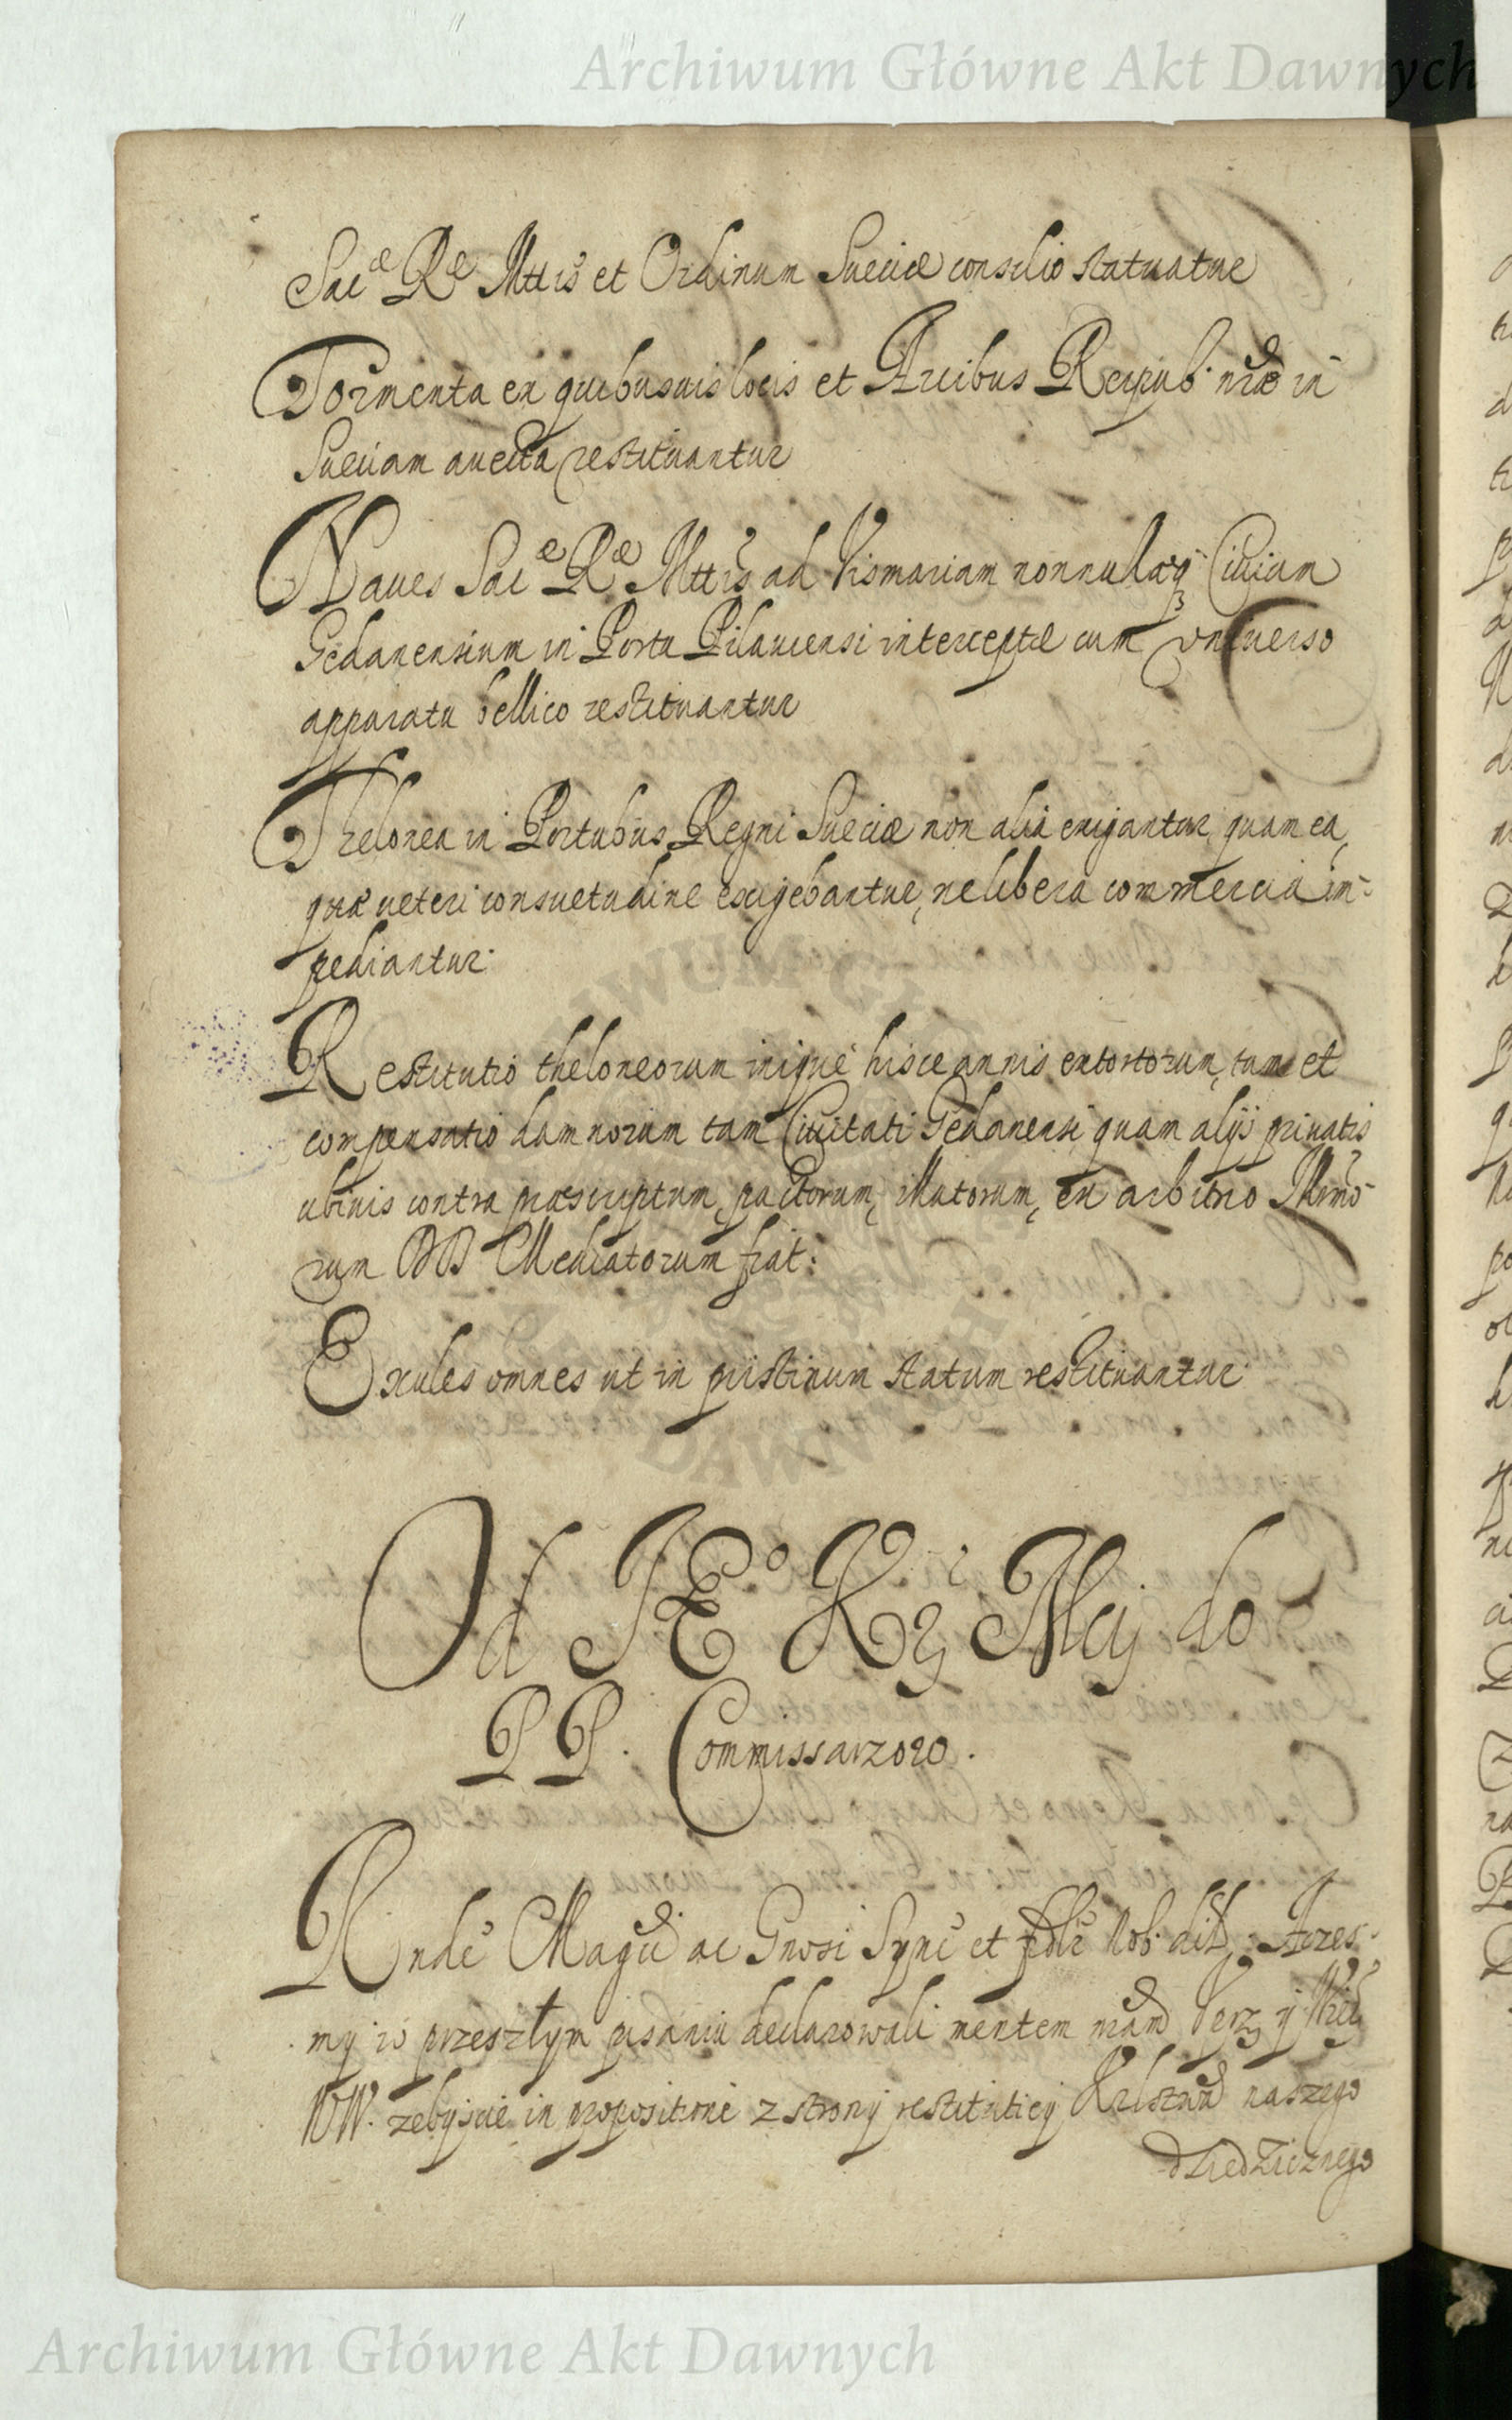 Archiwum Główne Akt Dawnych
Sacæ Ræ Mttis et Ordinum Sueciæ consilio statuatur
Tormenta ex quibusuis locis et Arcibus Reipub. nræ in
Sueciam auecta restituantur
Naues Sacæ Ræ Mttis ad Vismariam nonnullaq; Ciuium
Gedanensium in Portu Pilaucensi interceptæ cum vniuerso
apparatu bellico restituantur
Thelonea in Portubus Regni Sueciæ non alia exigantur, quam ea,
quæ ueteri consuetudine exigebantur, ne libera commercia im-
pediantur.
Restitutio theloneorum inique hisce annis extortorum, tum et
compensatio damnorum tam Ciuitati Gedanensi quam alijs priuatis
ubiuis contra præscriptum pactorum, illatorum, ex arbitrio Illrmo-
rum DD Mediatorum fiat:
Exules omnes ut in pristinum statum restituantur.
Od JEo Kr Mci do
PP. Commissarzow.
Rnde Magci ac Gnosi Sync et fidlr Nob. dil. Aczes-
my w przeszłym pisaniu declarowali mentem nram Verz y Wier
WW. zebyscie in propositione z strony restitutiey Krlstwa naszego
dziedzicznego
Archiwum Główne Akt Dawnych